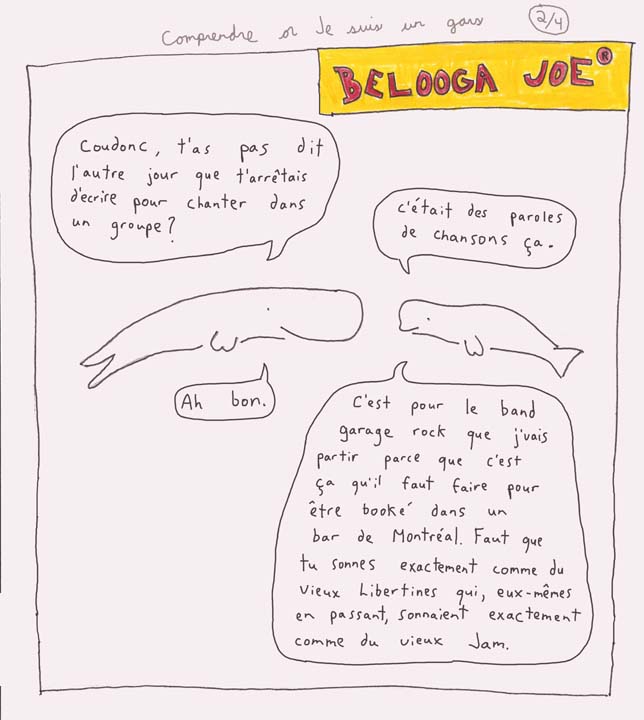 Comprendre or Je suis un gars
2/4
BELOOGA JOE®
Coudonc, t'as pas dit
l'autre jour que t'arrêtais
d'écrire pour chanter dans
un groupe?
c'était des paroles
de chansons ça.
Ah bon.
C'est pour le band
garage rock que j'vais
partir parce que c'est
ça qu'il faut faire pour
être booké dans un
bar de Montréal. Faut que
tu sonnes exactement comme du
vieux Libertines qui, eux-mêmes
en passant, sonnaient exactement
comme du vieux Jam.